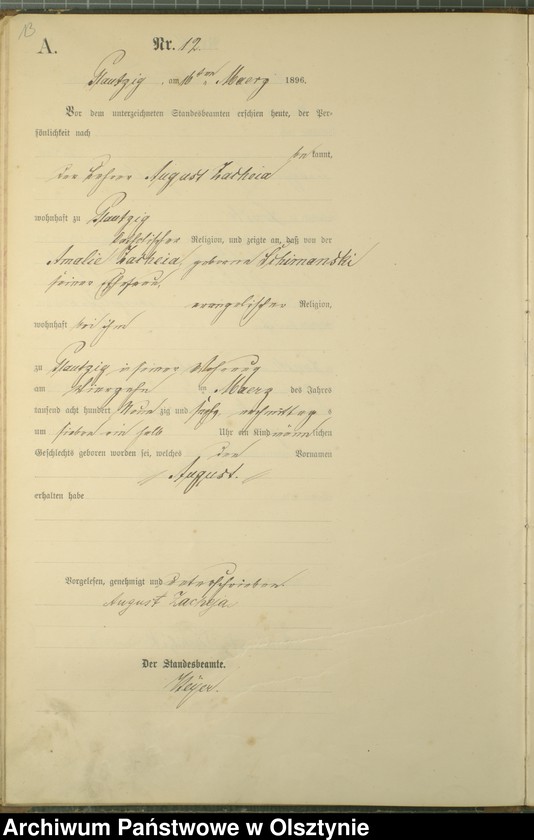 13
A.
Nr. 12.
Plautzig, am 16ten Maerz 1896.
Vor dem unterzeichneten Standesbeamten erschien heute, der Per-
sönlichkeit nach
be kannt,
der August Zacheia
wohnhaft zu Plautzig
katholischer Religion, und zeigte an, daß von der
Amalie Zacheia, geborene Schimanski
seiner Ehefrau
evangelischer Religion,
wohnhaft bei ihm
zu Plautzig in seiner Wohnung
am vierzehn ten Maerz des Jahres
tausend acht hundert neun zig und sechs nachmittag s
um sieben ein halb Uhr ein Kind männ lichen
Geschlechts geboren worden sei, welches den Vornamen
August.
erhalten habe
Vorgelesen, genehmigt und unterschrieben
August Zacheja
Der Standesbeamte.
Archiwum Państwowe w Olsztynie